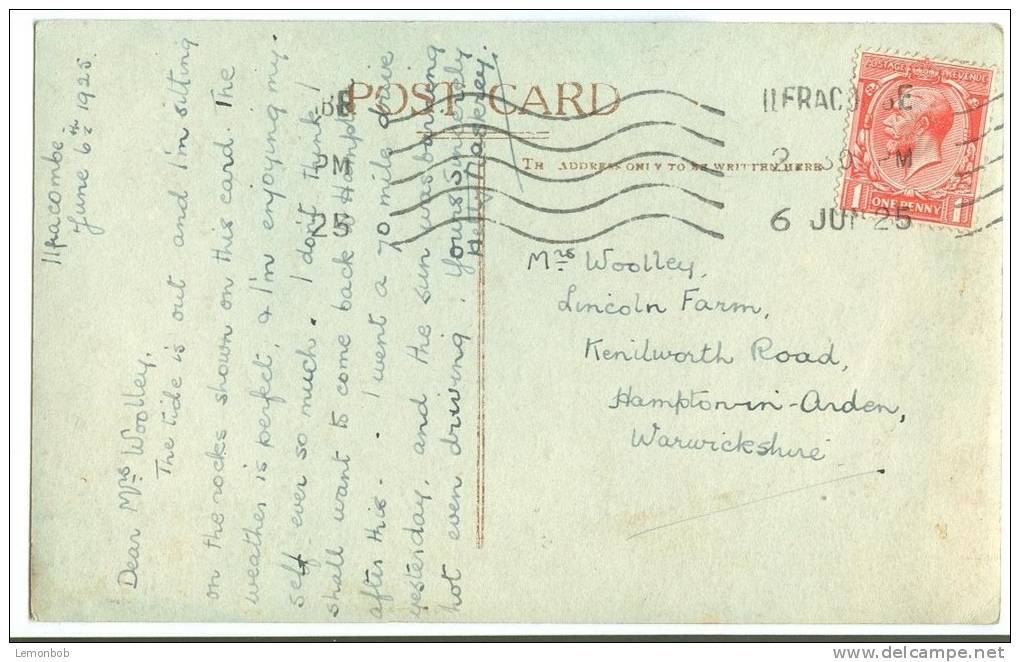 POST CARD
THE ADDRESS ONLY TO BE WRITTEN HERE
ILFRACOMBE
2 30 PM
6 JUN 25
BE
PM
25
POSTAGE REVENUE
1 ONE PENNY 1
Ilfracombe
June 6th 1925.
Dear Mrs Woolley,
The tide is out and I'm sitting
on the rocks shown on this card. The
weather is perfect, & I'm enjoying my-
self ever so much. I don't think I
shall want to come back to Hampton
after this. I went a 70 mile drive
yesterday, and the sun was burning
hot even driving. Yours sincerely
Hetty
Mrs Woolley,
Lincoln Farm,
Kenilworth Road,
Hampton-in-Arden,
Warwickshire
Lemonbob
www.delcampe.net